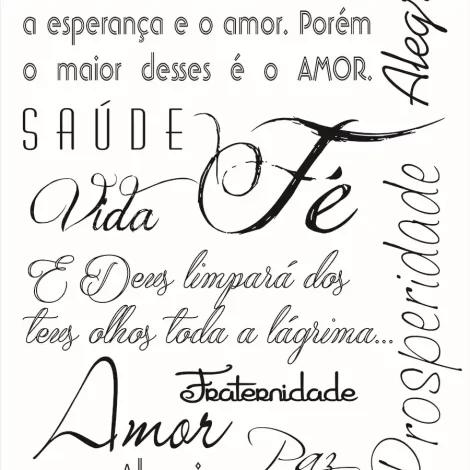 a esperança e o amor. Porém
o maior desses é o AMOR.
SAÚDE
Fé
Vida
E Deus limpará dos
teus olhos toda a lágrima...
Prosperidade
Fraternidade
Amor
Paz